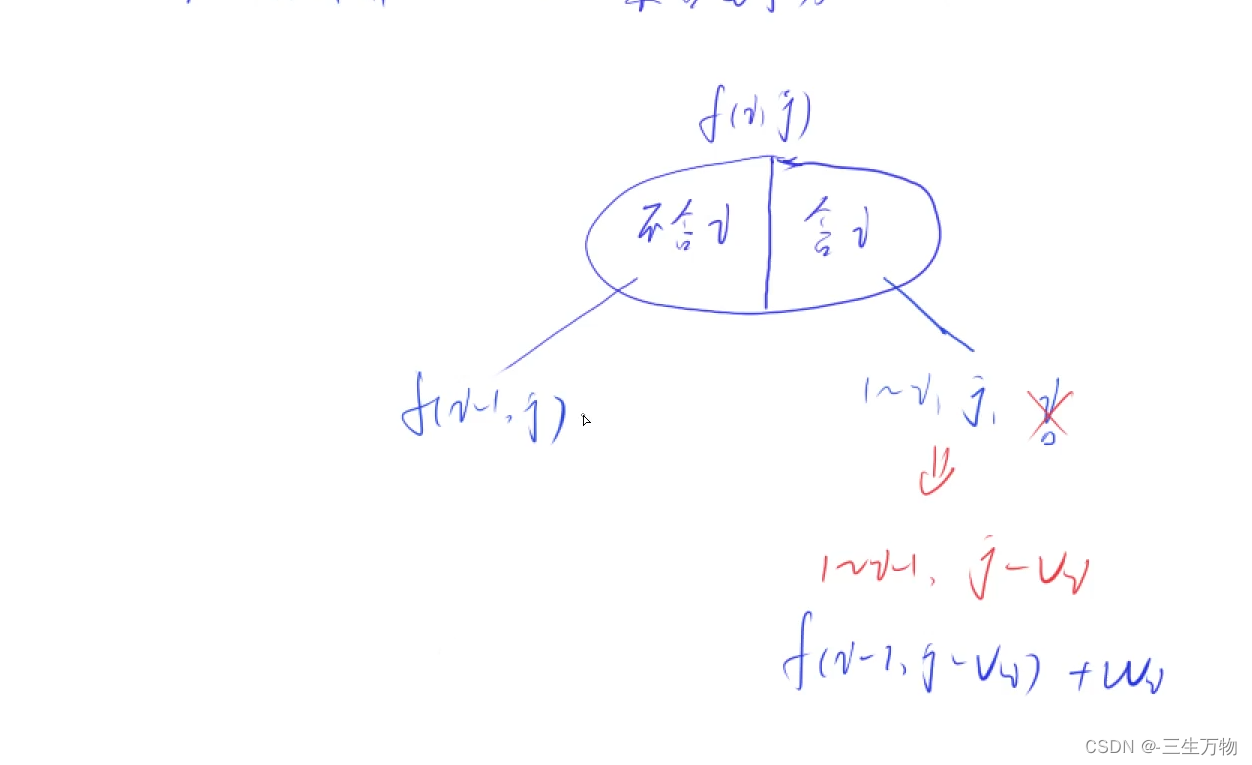 f(i, j)
不含i 含i
f(i-1, j)
1~i, j, i
⇓
1~i-1, j-vi
f(i-1, j-vi) + wi
CSDN @-三生万物